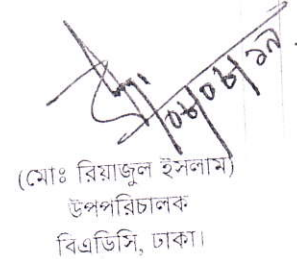 ০৮/০৮/১৯
(মোঃ রিয়াজুল ইসলাম)
উপপরিচালক
বিএডিসি, ঢাকা।